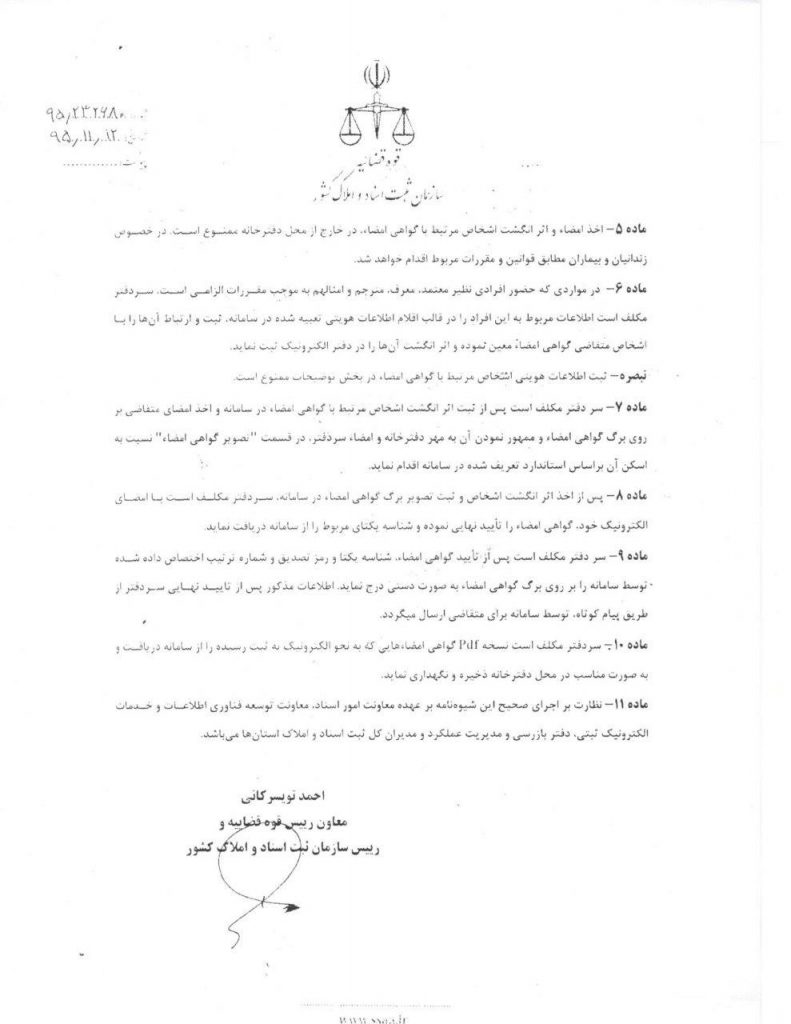 ۹۵/۲۳۲۶۸۰
۹۵/۱۱/۱۲
قوه قضائیه
سازمان ثبت اسناد و املاک کشور
ماده ۵– اخذ امضاء و اثر انگشت اشخاص مرتبط با گواهی امضاء، در خارج از محل دفترخانه ممنوع است. در خصوص
زندانیان و بیماران مطابق قوانین و مقررات مربوط اقدام خواهد شد.
ماده ۶– در مواردی که حضور افرادی نظیر معتمد، معرف، مترجم و امثالهم به موجب مقررات الزامی است، سردفتر
مکلف است اطلاعات مربوط به این افراد را در قالب اقلام اطلاعات هویتی تعبیه شده در سامانه، ثبت و ارتباط آن‌ها را با
اشخاص متقاضی گواهی امضاءً معین نموده و اثر انگشت آن‌ها را در دفتر الکترونیک ثبت نماید.
تبصره– ثبت اطلاعات هویتی اشخاص مرتبط با گواهی امضاء در بخش توضیحات ممنوع است.
ماده ۷– سر دفتر مکلف است پس از ثبت اثر انگشت اشخاص مرتبط با گواهی امضاء در سامانه و اخذ امضای متقاضی بر
روی برگ گواهی امضاء و ممهور نمودن آن به مهر دفترخانه و امضاء سردفتر، در قسمت "تصویر گواهی امضاء" نسبت به
اسکن آن براساس استاندارد تعریف شده در سامانه اقدام نماید.
ماده ۸– پس از اخذ اثر انگشت اشخاص و ثبت تصویر برگ گواهی امضاء در سامانه، سردفتر مکلف است با امضای
الکترونیک خود، گواهی امضاء را تأیید نهایی نموده و شناسه یکتای مربوط را از سامانه دریافت نماید.
ماده ۹– سر دفتر مکلف است پس از تأیید گواهی امضاء، شناسه یکتا و رمز تصدیق و شماره ترتیب اختصاص داده شده
توسط سامانه را بر روی برگ گواهی امضاء به صورت دستی درج نماید. اطلاعات مذکور پس از تایید نهایی سردفتر از
طریق پیام کوتاه، توسط سامانه برای متقاضی ارسال میگردد.
ماده ۱۰– سردفتر مکلف است نسخه Pdf گواهی امضاءهایی که به نحو الکترونیک به ثبت رسیده را از سامانه دریافت و
به صورت مناسب در محل دفترخانه ذخیره و نگهداری نماید.
ماده ۱۱– نظارت بر اجرای صحیح این شیوه‌نامه بر عهده معاونت امور اسناد، معاونت توسعه فناوری اطلاعات و خدمات
الکترونیک ثبتی، دفتر بازرسی و مدیریت عملکرد و مدیران کل ثبت اسناد و املاک استان‌ها می‌باشد.
احمد تویسرکانی
معاون رییس قوه قضاییه و
رییس سازمان ثبت اسناد و املاک کشور